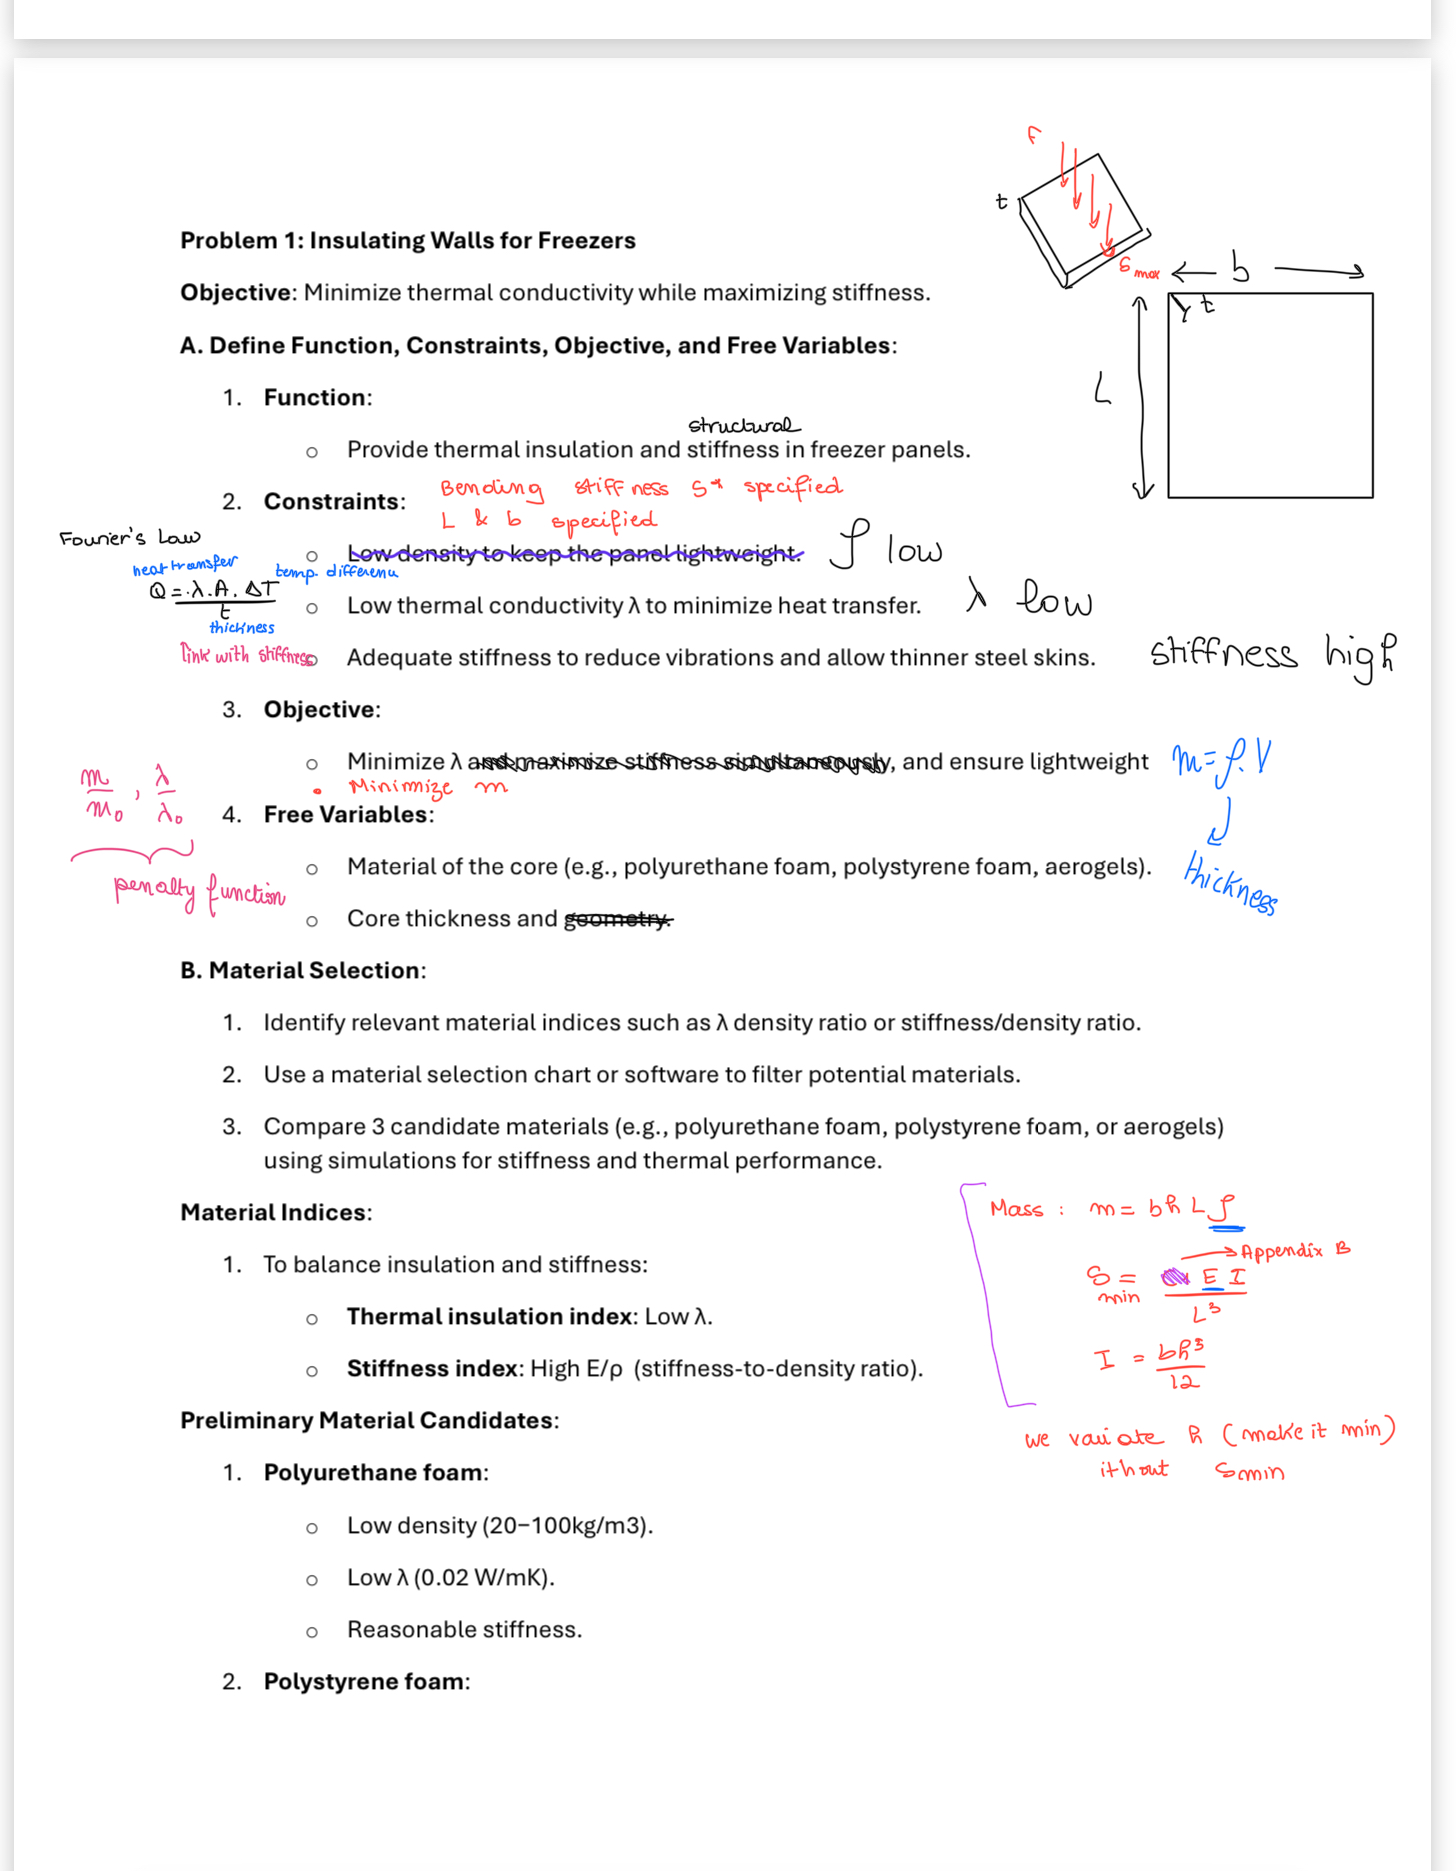 F
t
δ max
b
t
L
Problem 1: Insulating Walls for Freezers
Objective: Minimize thermal conductivity while maximizing stiffness.
A. Define Function, Constraints, Objective, and Free Variables:
1. Function:
structural
o Provide thermal insulation and stiffness in freezer panels.
2. Constraints:
Bending stiffness S* specified
L & b specified
o Low density to keep the panel lightweight.
ρ low
Fourier's Law
heat transfer
temp. differenu
Q = λ.A. ΔT
t
thickness
link with stiffness
o Low thermal conductivity λ to minimize heat transfer.
λ low
o Adequate stiffness to reduce vibrations and allow thinner steel skins.
stiffness high
3. Objective:
o Minimize λ and maximize stiffness simultaneously, and ensure lightweight
m = ρ. V
thickness
• Minimize m
m/m₀ , λ/λ₀
penalty function
4. Free Variables:
o Material of the core (e.g., polyurethane foam, polystyrene foam, aerogels).
o Core thickness and geometry.
B. Material Selection:
1. Identify relevant material indices such as λ density ratio or stiffness/density ratio.
2. Use a material selection chart or software to filter potential materials.
3. Compare 3 candidate materials (e.g., polyurethane foam, polystyrene foam, or aerogels)
using simulations for stiffness and thermal performance.
Material Indices:
1. To balance insulation and stiffness:
o Thermal insulation index: Low λ.
o Stiffness index: High E/ρ (stiffness-to-density ratio).
Mass : m = bh L ρ
Appendix B
S min = E I
L³
I = bh³
12
we variate h (make it min)
ithout Smin
Preliminary Material Candidates:
1. Polyurethane foam:
o Low density (20–100kg/m3).
o Low λ (0.02 W/mK).
o Reasonable stiffness.
2. Polystyrene foam: